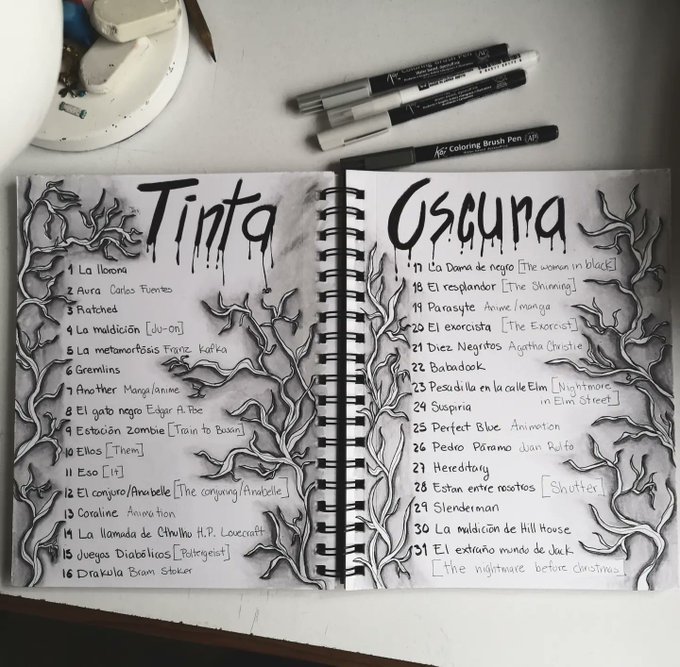 Koi Coloring Brush Pen AP
Koi Coloring Brush Pen AP
Tinta
1 La llorona
2 Aura Carlos Fuentes
3 Ratched
4 La maldición [Ju-on]
5 La metamorfósis Franz Kafka
6 Gremlins
7 Another Manga/anime
8 El gato negro Edgar A. Poe
9 Estación Zombie [Train to Busan]
10 Ellos [Them]
11 Eso [It]
12 El conjuro/Anabelle [The conjuring/Anabelle]
13 Coraline Animation
14 La llamada de Cthulhu H.P. Lovecraft
15 Juegos Diabólicos [Poltergeist]
16 Drakula Bram Stoker
Oscura
17 La Dama de negro [The woman in black]
18 El resplandor [The Shinning]
19 Parasyte Anime/manga
20 El exorcista [The Exorcist]
21 Diez Negritos Agatha Christie
22 Babadook
23 Pesadilla en la calle Elm [Nightmare
in Elm Street]
24 Suspiria
25 Perfect Blue Animation
26 Pedro Páramo Juan Rulfo
27 Hereditary
28 Estan entre nosotros [Shutter]
29 Slenderman
30 La maldición de Hill House
31 El extraño mundo de Jack
[the nightmare before christmas]